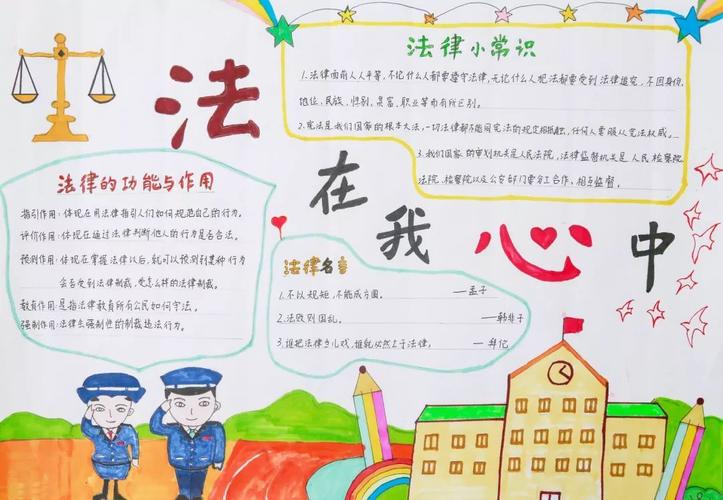 法在我心中
法律小常识
1.法律面前人人平等,不论什么人都要遵守法律,无论什么人犯法都要受到法律追究,不因身份,
地位、民族、性别、贫富、职业等而有所区别。
2.宪法是我们国家的根本大法,一切法律都不能同宪法的规定相抵触,任何人要服从宪法权威。
3.我们国家的审判机关是人民法院,法律监督机关是人民检察院
法院、检察院以及公安部门要分工合作、相互监督。
法律的功能与作用
指引作用:体现在用法律指引人们如何规范自己的行为。
评价作用:体现在通过法律判断他人的行为是否合法。
预测作用:体现在掌握法律以后,就可以预测到某种行为
会否受到法律制裁,受怎么样的法律制裁。
教育作用:是指法律教育所有公民如何守法。
强制作用:法律去强制性的制裁违法行为。
法律名言
1.不以规矩,不能成方圆。 ——孟子
2.法败则国乱。 ——韩非子
3.谁把法律当儿戏,谁就必然亡于法律。 ——拜伦